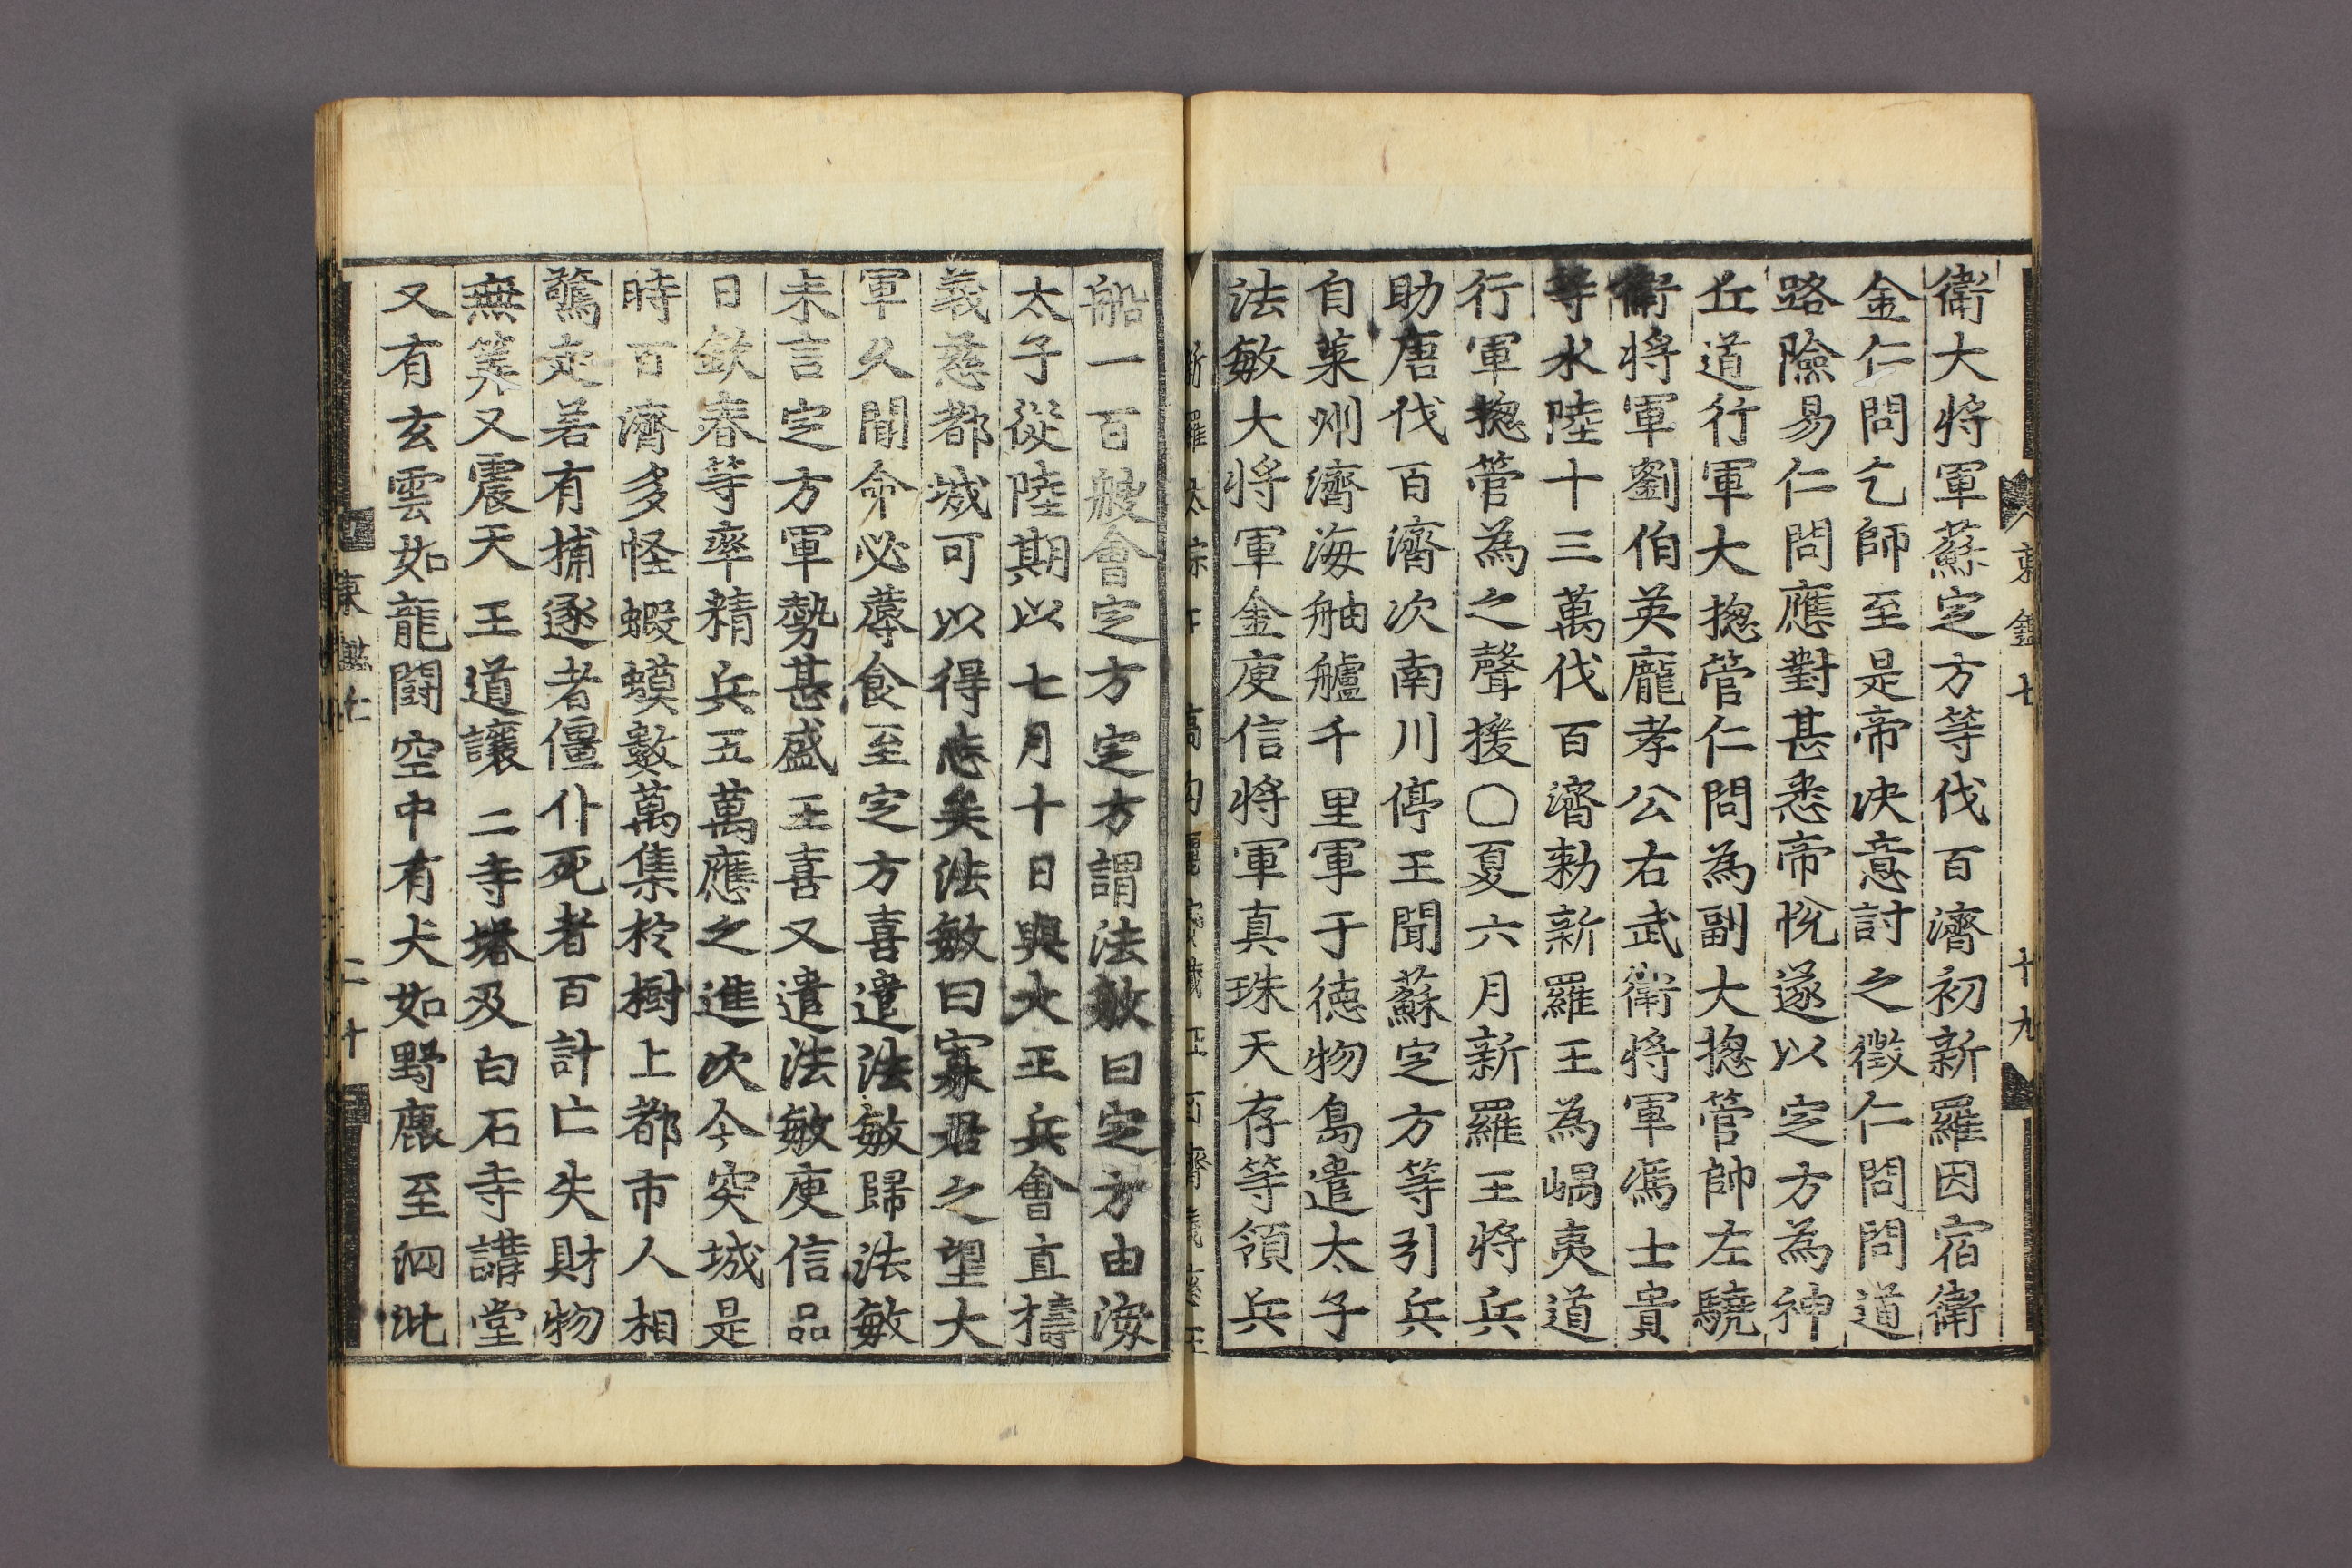 東鑑七
十九
衛大將軍蘇定方等伐百濟初新羅因宿衛
金仁問乞師至是帝決意討之徵仁問問道
路險易仁問應對甚悉帝悅遂以定方為神
丘道行軍大摠管仁問為副大摠管帥左驍
衛將軍劉伯英龐孝公右武衛將軍馮士貴
等水陸十三萬伐百濟勑新羅王為嵎夷道
行軍摠管為之聲援○夏六月新羅王將兵
助唐伐百濟次南川停王聞蘇定方等引兵
自萊州濟海舳艫千里軍于德物島遣太子
法敏大將軍金庾信將軍真珠天存等領兵
船一百艘會定方定方謂法敏曰定方由海
太子從陸期以七月十日與大王兵會直擣
義慈都城可以得志矣法敏曰寡君之望大
軍久聞命必蓐食至定方喜遣法敏歸法敏
來言定方軍勢甚盛王喜又遣法敏庾信品
日欽春等率精兵五萬應之進次今突城是
時百濟多怪蝦蟆數萬集於樹上都市人相
驚走若有捕逐者僵仆死者百計亡失財物
無筭又震天王道讓二寺塔及白石寺講堂
又有玄雲如龍鬪空中有犬如野鹿至泗沘
東鑑七
二十